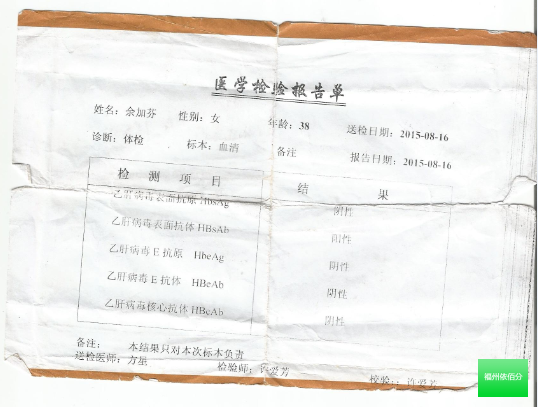 医学检验报告单
姓名：余加芬 性别：女 年龄：38 送检日期：2015-08-16
诊断：体检 标本：血清 备注 报告日期：2015-08-16
检测项目 结果
乙肝病毒表面抗原 HbsAg 阴性
乙肝病毒表面抗体 HBsAb 阳性
乙肝病毒 E 抗原 HbeAg 阴性
乙肝病毒 E 抗体 HBeAb 阴性
乙肝病毒核心抗体 HBcAb 阴性
备注： 本结果只对本次标本负责
送检医师：方星 检验师：许爱芳 校验：许爱芳
福州依佰分